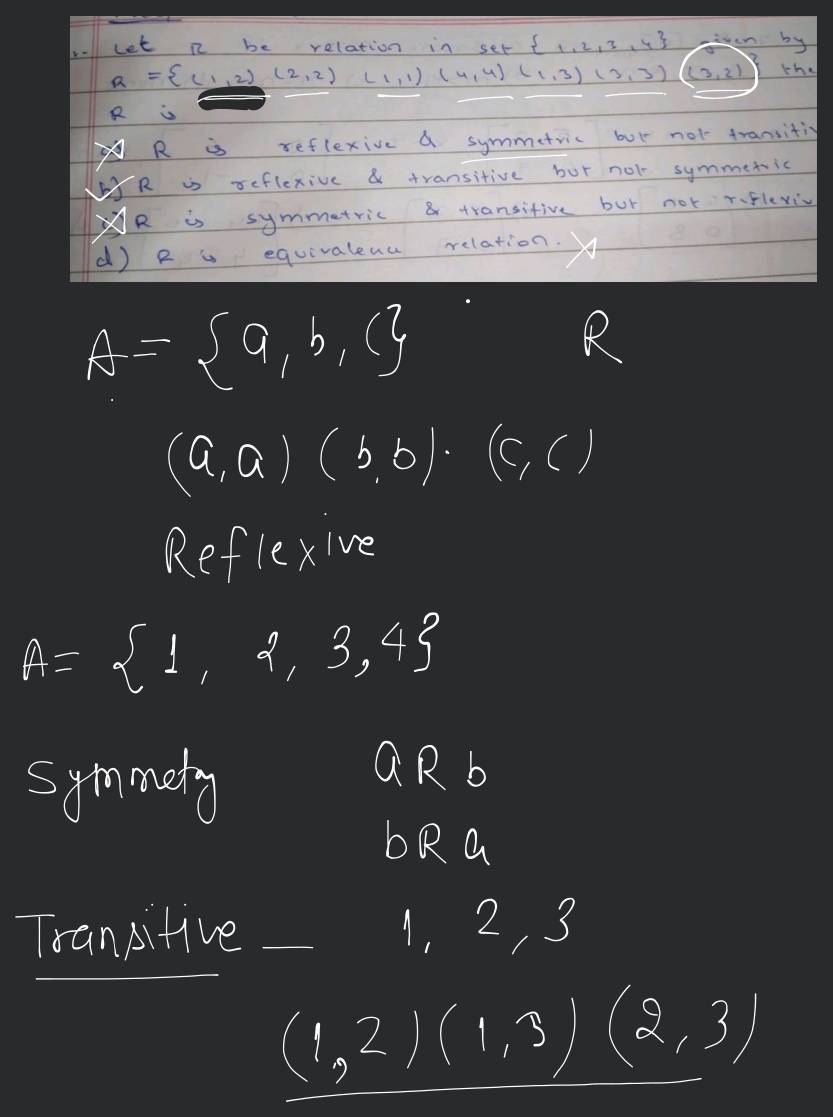 Let R be relation in set { 1,2,3,4} given by
R = { (1,2) (2,2) (1,1) (4,4) (1,3) (3,3) (3,2) } the
R is
R is reflexive & symmetric but not transitiv
b) R is reflexive & transitive but not symmetric
R is symmetric & transitive but not reflexiv
d) R is equivalence relation.
A = {a, b, c} R
(a,a) (b,b). (c,c)
Reflexive
A= {1, 2, 3,4}
Symmety a R b
b R a
Transitive — 1, 2, 3
(1,2) (1,3) (2,3)